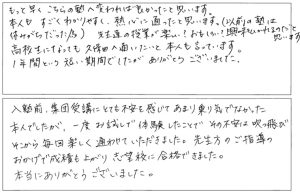 もっと早く、こちらの塾へ変われば良かったと思います。
本人も すごくわかりやすく、熱心に通ったと思います。(以前の塾は
休みがちだった為) 先生達の授業が楽しい!おもしろい!興味をもてれるのだと
思います
高校生になっても又僧田へ通いたいと本人も言っています。
1年間という短い期間でしたが ありがとうございました。
入塾前、集団受講にとても不安を感じて あまり乗り気でなかった
本人でしたが、一度お試しで体験したことで その不安は吹き飛び
そこから毎回楽しく通わせていただきました。先生方のご指導の
おかげで成績も上がり、志望校に合格できました。
本当にありがとうございました。